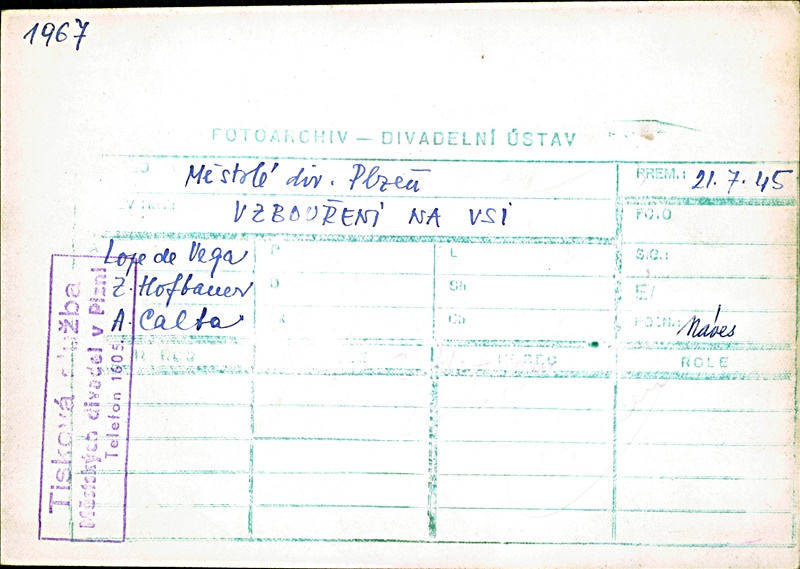 1967
FOTOARCHIV — DIVADELNÍ ÚSTAV
Městské div. Plzeň
PREM.: 21.7.45
VZBOUŘENÍ NA VSI
FOTO
Lope de Vega
L
S.G.:
Z. Hofbauer
Sh
A. Calta
Ch
POZN.: Náves
HEREC
ROLE
Tisková služba
Městských divadel v Plzni
Telefon 1605.